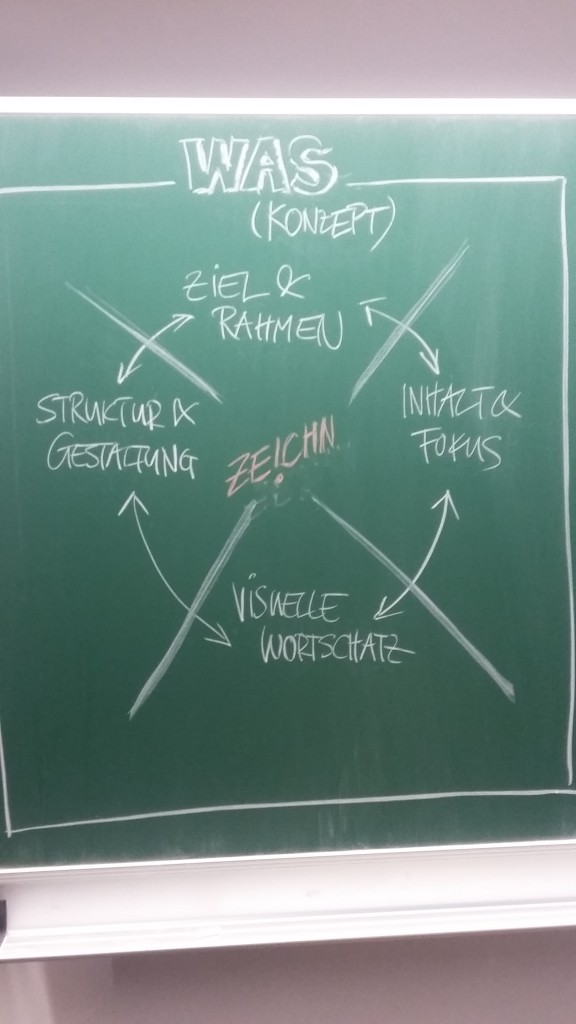 WAS
(KONZEPT)
ZIEL &
RAHMEN
STRUKTUR &
GESTALTUNG
INHALT &
FOKUS
ZE!CHN
VISUELLE
WORTSCHATZ